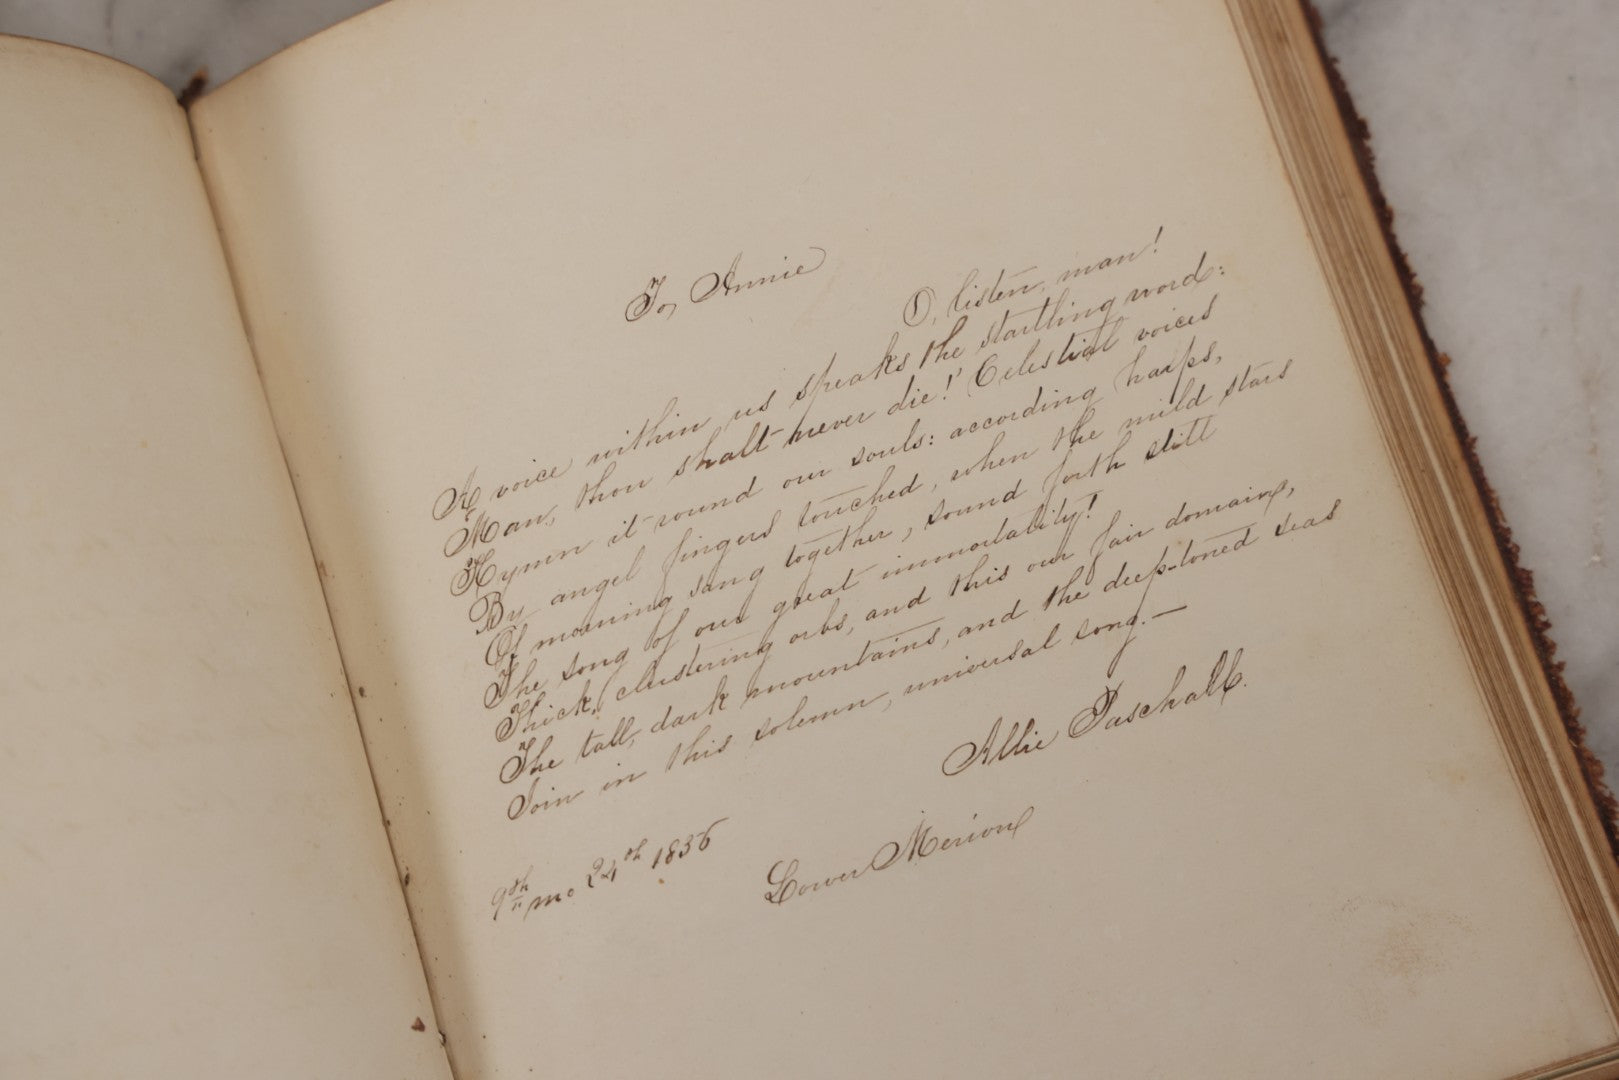 To Annie
O, listen, man!
A voice within us speaks the startling word:
Man, thou shalt never die!" Celestial voices
Hymn it round our souls: according harps,
By angel fingers touched, when the mild stars
Of morning sang together, sound forth still
The song of our great immortality!
Thick, clustering orbs, and this our fair domain,
The tall, dark mountains, and the deep-toned seas
Join in this solemn, universal song.—
Allie Paschall.
9th mo 24th 1856
Lower Merion